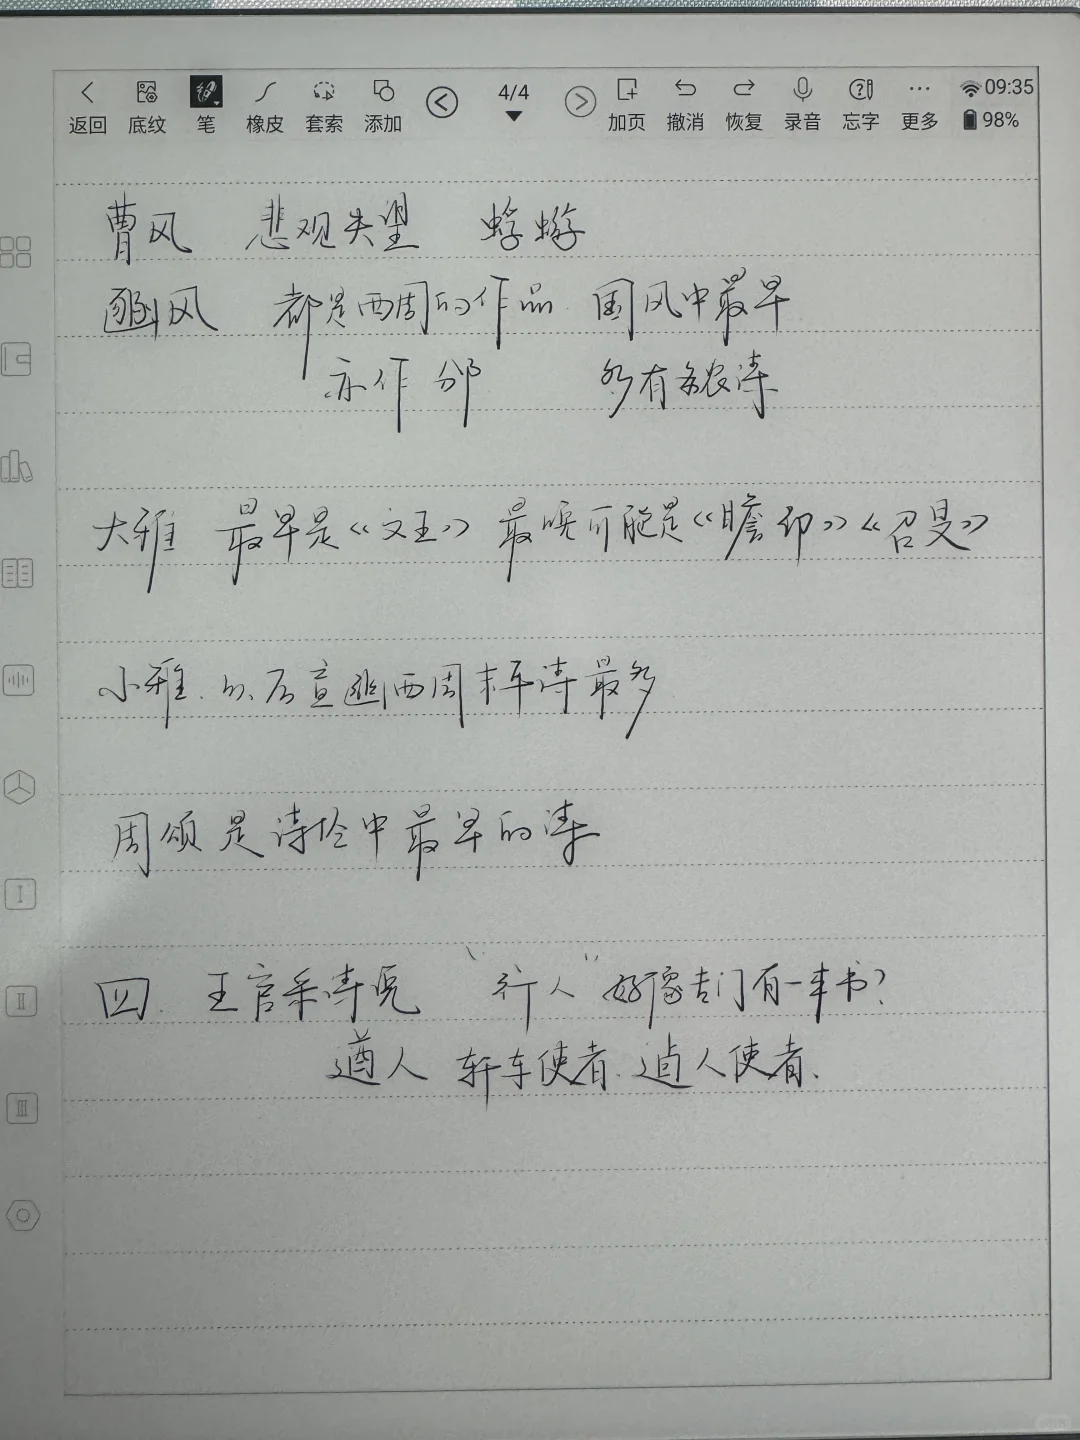 4/4
09:35
返回 底纹 笔 橡皮 套索 添加 加页 撤消 恢复 录音 忘字 更多 98%
曹风 悲观失望 蜉蝣
豳风 都是西周的作品 国风中最早
亦作 邠 多有务农诗
大雅 最早是《文王》 最晚可能是《瞻卬》《召旻》
小雅. 以厉宣幽西周末年诗最多
周颂是诗经中最早的诗
四. 王官采诗说 “行人” 好像专门有一本书?
遒人 轩车使者. 逌人使者.
I
II
III